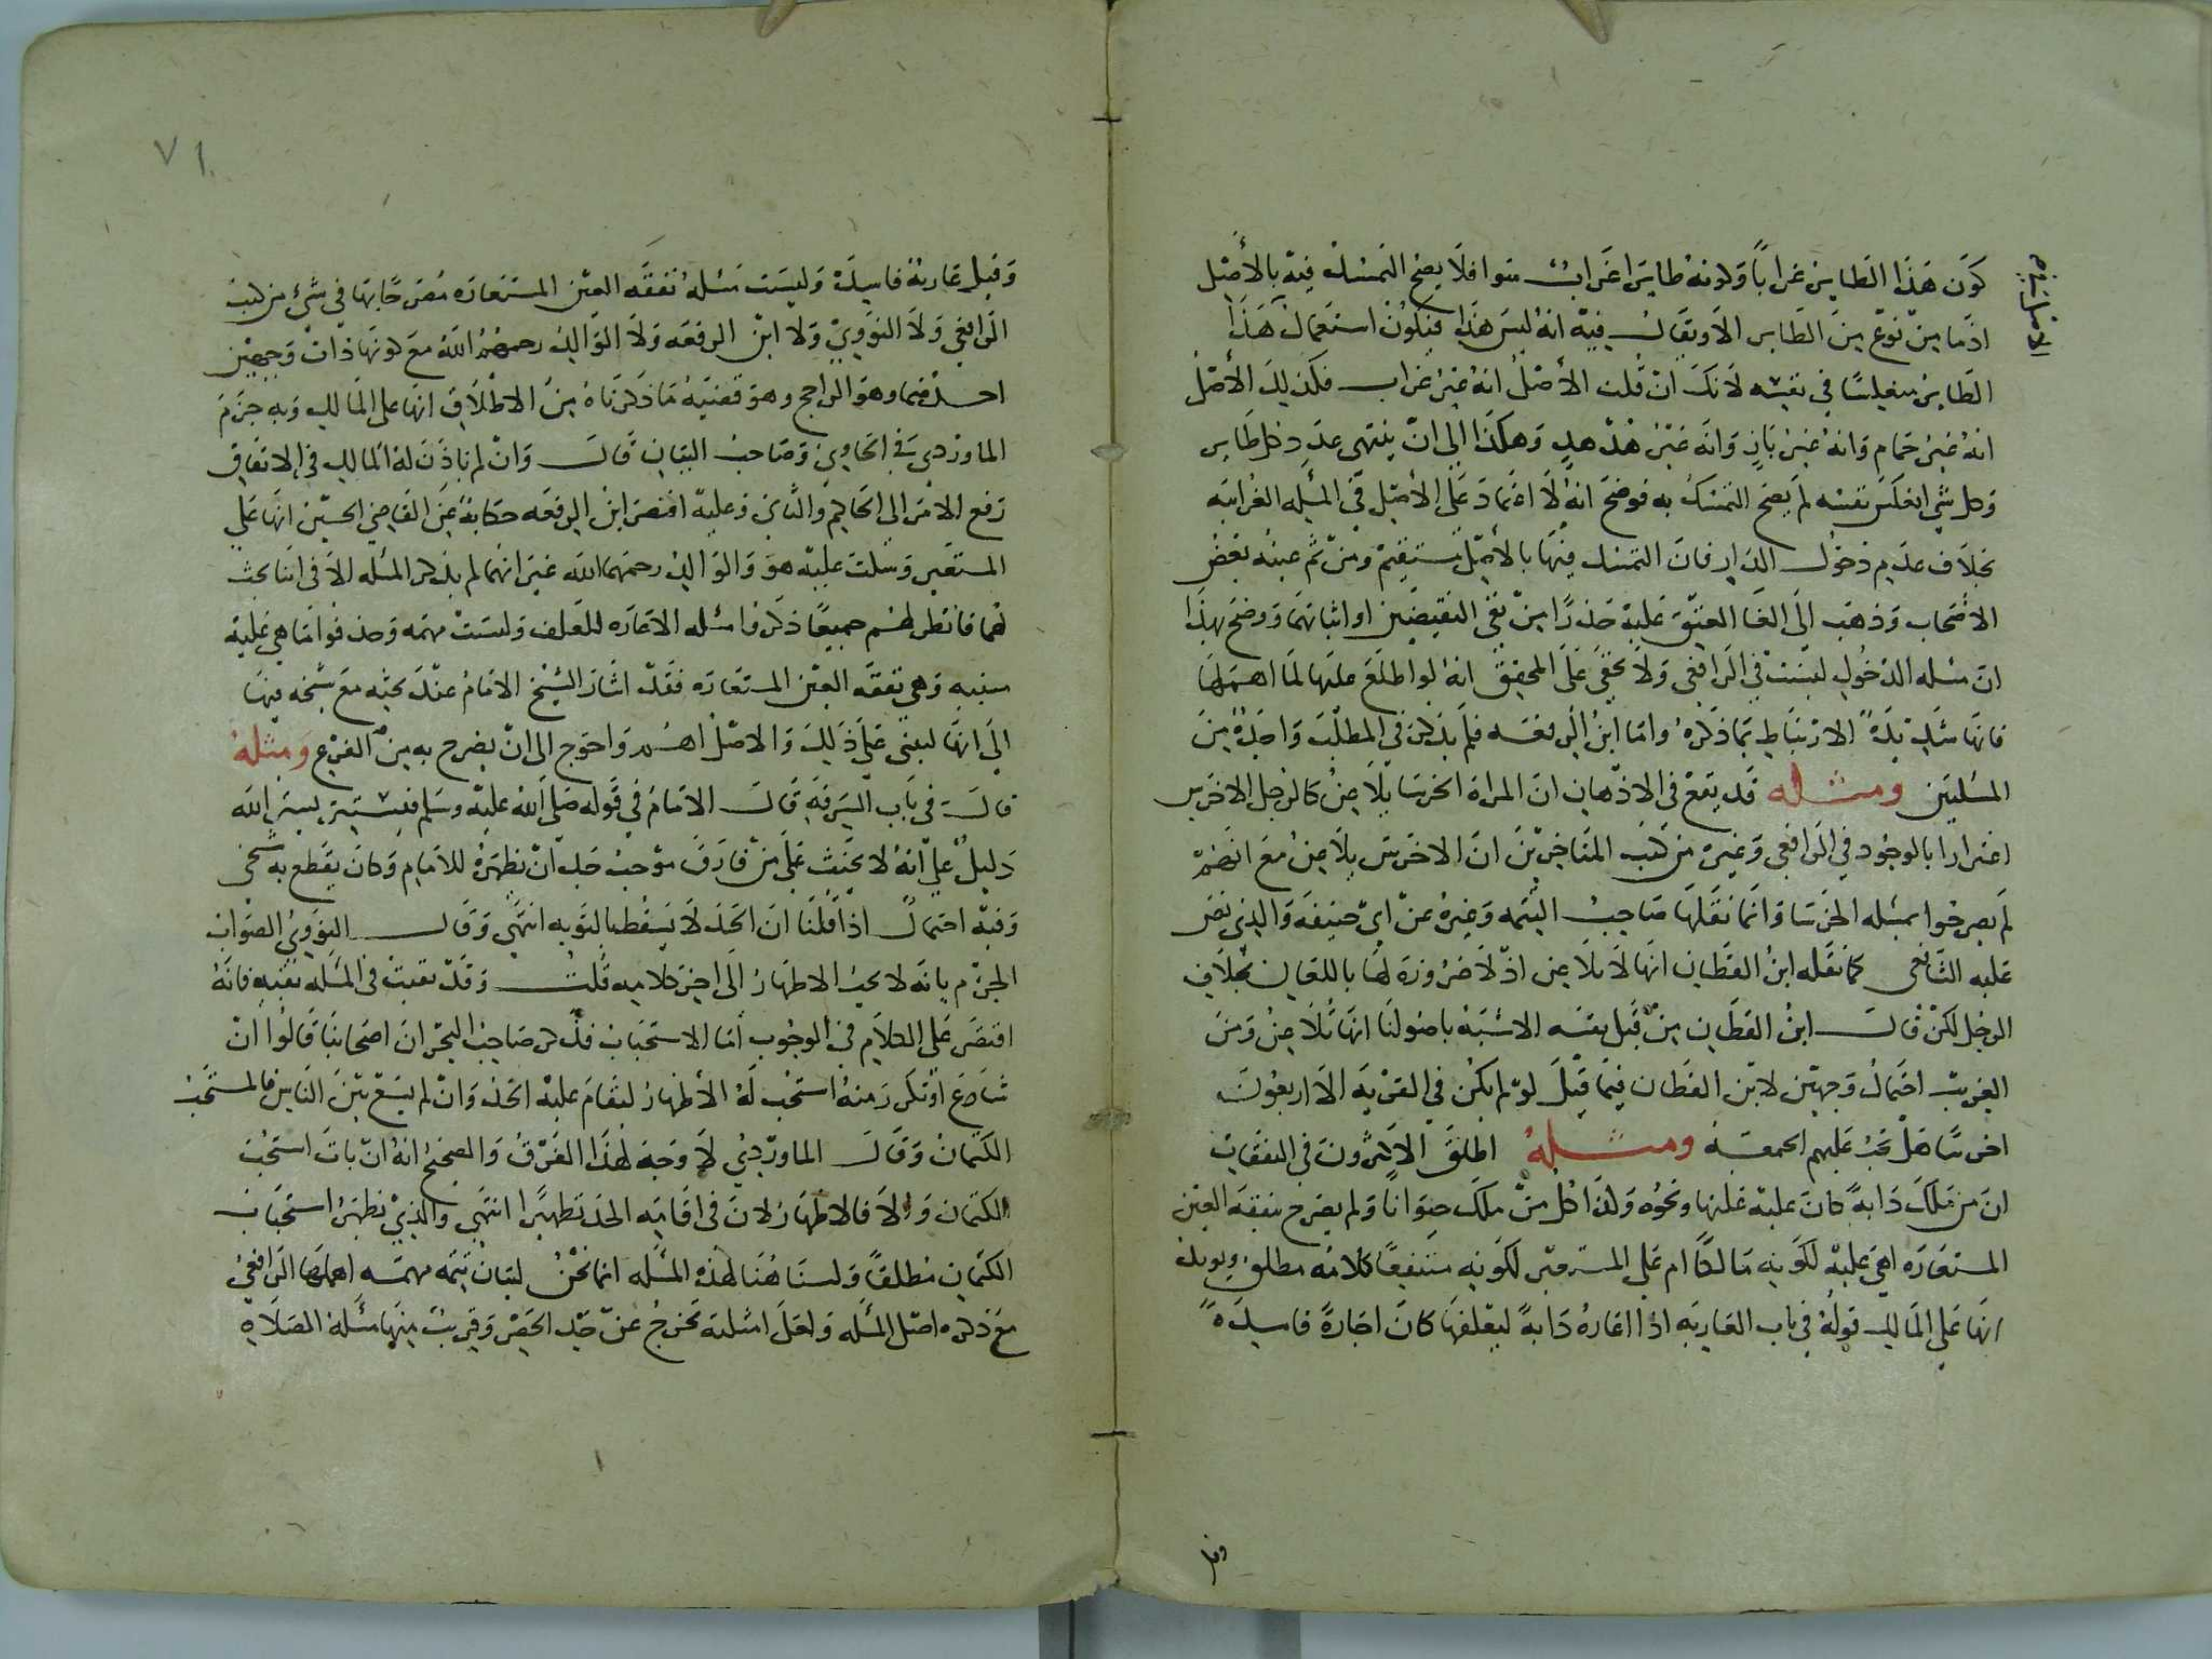 كون هذا الطاير غرابا وكونه طايرا غراب سوا فلا يصح التمسك فيه بالأصل
اذ ما من نوع من الطاير الا ويقال فيه انه ليس هذا فيكون استعمال هذا
الطاير منعكسا في نفسه لانك ان قلت الأصل انه غير غراب فكذلك الأصل
انه غير حمام وانه غير باز وانه غير هدهد وهكذا الى ان ينتهي عدد كل طاير
وكل شي انعكس بنفسه لم يصح التمسك به فوضح انه لا اعتماد على الأصل في المسله الغرابيه
بخلاف عدم دخول الدار فان التمسك فيها بالأصل مستقيم ومن ثم عينه بعض
الاصحاب وذهب الى الغا العتق عليه حذرا من نفي النقيضين او اثباتهما ووضح بهذا
ان مسله الدخول ليست في الرافعي ولا يخفى على المحقق انه لو اطلع عليها لما اهملها
فانها شديدة الارتباط بما ذكره واما ابن الرفعه فلم يذكر في المطلب واحدة من
المسلتين ومثله قد يقع في الاذهان ان المراة الخرسا تلاعن كالرجل الاخرس
اغترارا بالوجود في الرافعي وغيره من كتب المتاخرين ان الاخرس يلاعن مع انهم
لم يصرحوا بمسله الخرسا وانما نقلها صاحب التتمه وغيره عن ابي حنيفه والذي نص
عليه الشافعي كما نقله ابن القطان انها لا تلاعن اذ لا ضرورة لها باللعان بخلاف
الرجل لكن قال ابن القطان من قبل نفسه الاشبه باصولنا انها تلاعن ومن
الغريب احتمال وجهين لابن القطان فيما قيل لو لم يكن في القريه الا اربعون
اخرسا هل تجب عليهم الجمعه ومثله اطلق الاكثرون في النفقات
ان من ملك دابة كان عليه علفها ونحوه وكذا كل من ملك حيوانا ولم يصرح بنفقه العين
المستعاره اهي عليه لكونه مالكا ام على المستعير لكونه منتفعا كلامه مطلق ويويد
انها على المالك قوله في باب العاريه اذا اعاره دابة ليعلفها كان اجارة فاسدة
وقيل عارية فاسدة وليست مسله نفقه العين المستعاره مصرحا بها في شيء من كتب
الرافعي ولا النووي ولا ابن الرفعه ولا الوالد رحمهم الله مع كونها ذات وجهين
احدهما وهو الراجح وهو قضية ما ذكرناه من الاطلاق انها على المالك وبه جزم
الماوردي في الحاوي وصاحب البيان قال وان لم ياذن له المالك في الانفاق
رفع الامر الى الحاكم والثاني وعليه اقتصر ابن الرفعه حكاية عن القاضي الحسين انها على
المستعير وسكت عليه هو والوالد رحمهما الله غير انهما لم يذكرا المسله الا في اثنا بحث
لهما فانظر لهم جميعا ذكروا مسله الاعاره للعلف وليست مهمه وحذفوا ما هي عليه
مبنيه وهي نفقه العين المستعاره فقد اشار الشيخ الامام عند بحثه مع شيخه فيها
الى انها تبنى على ذلك والاصل اهم واحوج الى ان يصرح به من الفرع ومثله
قال في باب السرقه قال الامام في قوله صلى الله عليه وسلم فليستتر بستر الله
دليل على انه لا يجب على من قارف موجب حد ان يظهره للامام وكان يقطع به شيخي
وفيه احتمال اذا قلنا ان الحد لا يسقط بالتوبه انتهى وقال النووي الصواب
الجزم بانه لا يجب الاظهار الى اخر كلامه قلت وقد بقيت في المسله بقية فانه
اقتصر على الكلام في الوجوب اما الاستحباب فذكر صاحب البحر ان اصحابنا قالوا ان
شاع او تكرر منه استحب له الأظهار ليقام عليه الحد وان لم يشع بين الناس فالمستحب
الكتمان وقال الماوردي لا وجه لهذا الفرق والصحيح انه ان تاب استحب
الكتمان والا فالاظهار لان في اقامه الحد تطهيرا انتهى والذي يظهر استحباب
الكتمان مطلقا ولسنا هنا لهذه المسله انما نحن لبيان تتمه مهمه اهملها الرافعي
مع ذكره اصل المسله ولعل امثلته تخرج عن حد الحصر وقريب منها مسلة الصلاة